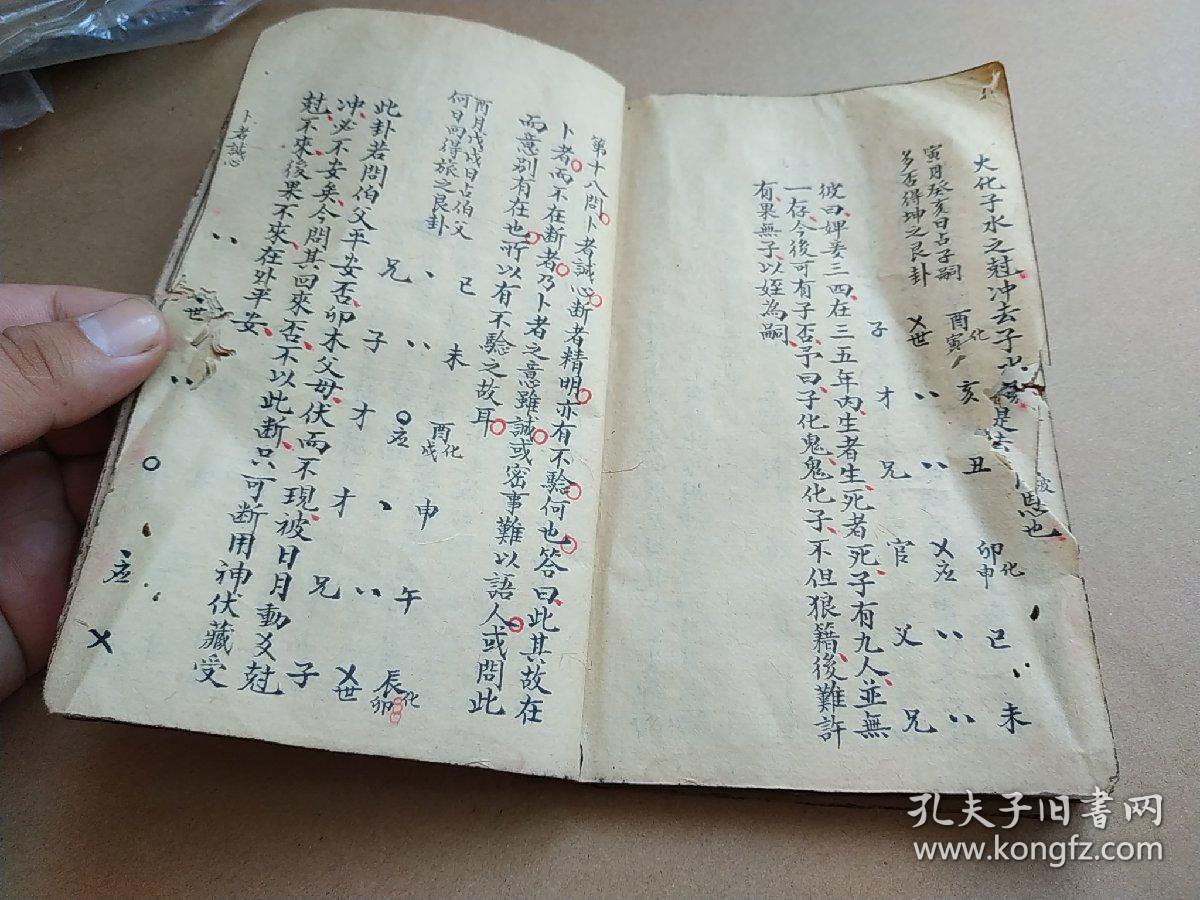 大化子水之尅冲去子
是去
恩也
寅月癸亥日占子嗣
多否得坤之艮卦
子 才 兄 官 父 兄
世 應
酉化寅 亥 丑 卯化申 巳 未
彼曰婢妾三四在三五年内生者生死者死子有九人並無
一存今後可有子否予曰子化鬼鬼化子不但狼籍後難許
有果無子以姪為嗣
第十八問卜者誠心断者精明亦有不驗何也答曰此其故在
卜者而不在断者乃卜者之意雖誠或密事難以語人或問此
而意别有在也所以有不驗之故耳
酉月戊戌日占伯父
何日回得旅之艮卦
兄 子 才 才 兄 子
應 世
巳 未 酉化戌 申 午 辰化卯
此卦若問伯父平安否卯木父母伏而不現被日月動爻尅
冲必不安矣今問其回來否不以此断只可断用神伏藏受
尅不來後果不來在外平安
卜者誠心
世 應
孔夫子旧書网
www.kongfz.com